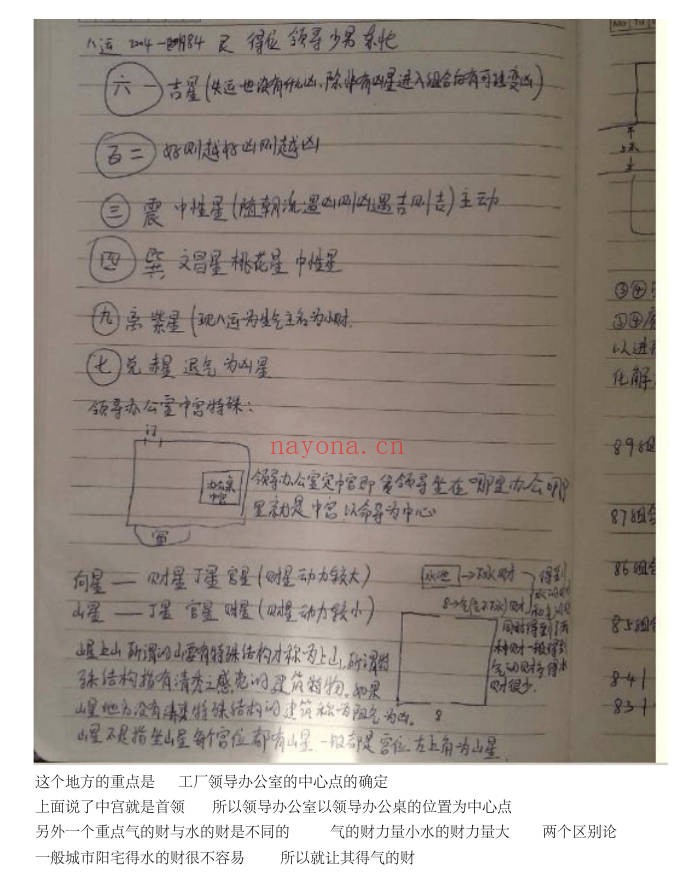 八运 2004-2084 艮 得位 领导 少男 东北
六 一 吉星(失运也没有什么凶,除非有凶星进入组合的有可能变凶)
五 二 好则越好凶则越凶
三 震 中性星(随朝流遇凶则凶遇吉则吉)主动
四 巽 文昌星 桃花星 中性星
九 离 紫星(现八运为生气主名为小财.
七 兑 赤星 退气 为凶星
领导办公室中宫特殊:
门
nayona.cn
办公桌
中宫
窗
领导办公室定中宫即 领导坐在哪里办公哪
里就是中宫 以领导为中心
向星 — 财星 丁星 官星(财星动力较大)
山星 — 丁星 官星 财星(财星动力较小)
水池 → 水财
得到
同时得到了两
种财一般得到
气的财多得水
财很少.
8
山星上山 所谓的山要有特殊结构才称为上山,所谓特
殊结构指有清秀之感觉的建筑特物。如果
山星地方没有清秀特殊结构的建筑称为阻气为凶。
山星不是指坐山星 每个宫位都有山星 一般都是宫位左上角为山星.
③④
③④
以进
化解
89组
87组合
86组合
85组合
84
83
这个地方的重点是 工厂领导办公室的中心点的确定
上面说了中宫就是首领 所以领导办公室以领导办公桌的位置为中心点
另外一个重点气的财与水的财是不同的 气的财力量小水的财力量大 两个区别论
一般城市阳宅得水的财很不容易 所以就让其得气的财